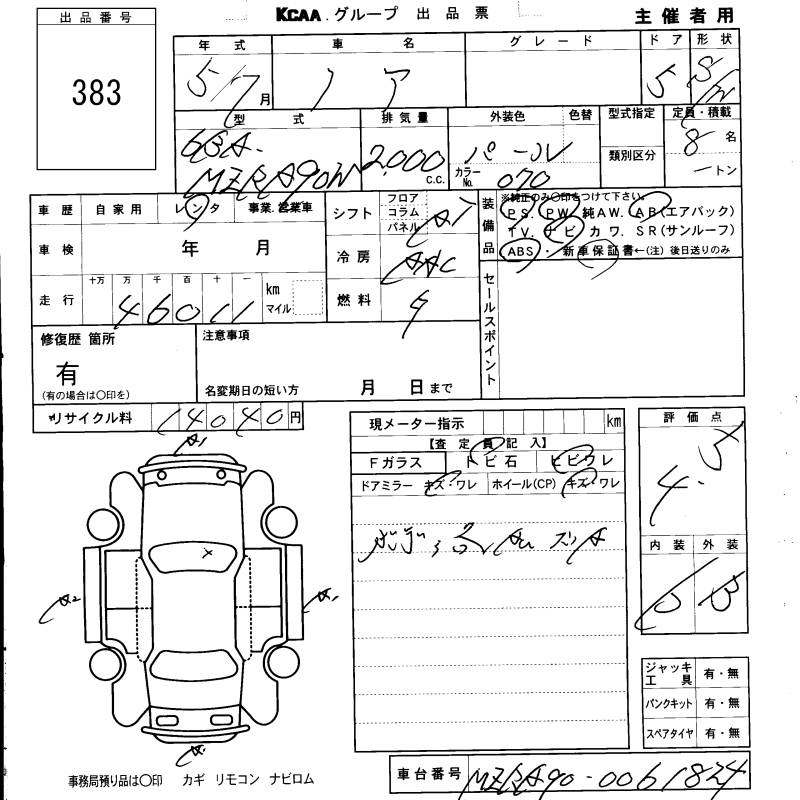 出品番号
383
KCAA.グループ 出品票
主催者用
年式 車名 グレード ドア 形状
5/7月 ノア 5 S/W
型式 排気量 外装色 色替 型式指定 定員・積載
6BA-MZRA90W 2,000 C.C. パール 類別区分 8名
カラーNo. 070 ートン
車歴 自家用 レンタ 事業.営業車
シフト フロア コラム パネル AT
装備品 ※純正のみ〇印をつけて下さい。
PS. PW. 純AW. AB(エアバック)
TV. ナビ カワ. SR(サンルーフ)
ABS・ 新車保証書←(注) 後日送りのみ
車検 年 月
冷房 AAC
走行 十万 万 千 百 十 一 km マイル
46011
燃料 ガ
セールスポイント
修復歴 箇所
有
(有の場合は〇印を)
注意事項
名変期日の短い方 月 日まで
リサイクル料 14040円
現メーター指示 km
【査定員記入】
Fガラス トビ石 ヒビワレ
ドアミラー キズ・ワレ ホイール(CP) キズ・ワレ
評価点
4.5
内装 外装
B B
A1
A2
A1
A1
ジャッキ工具 有・無
パンクキット 有・無
スペアタイヤ 有・無
車台番号 MZRA90-0061824
事務局預り品は〇印 カギ リモコン ナビロム